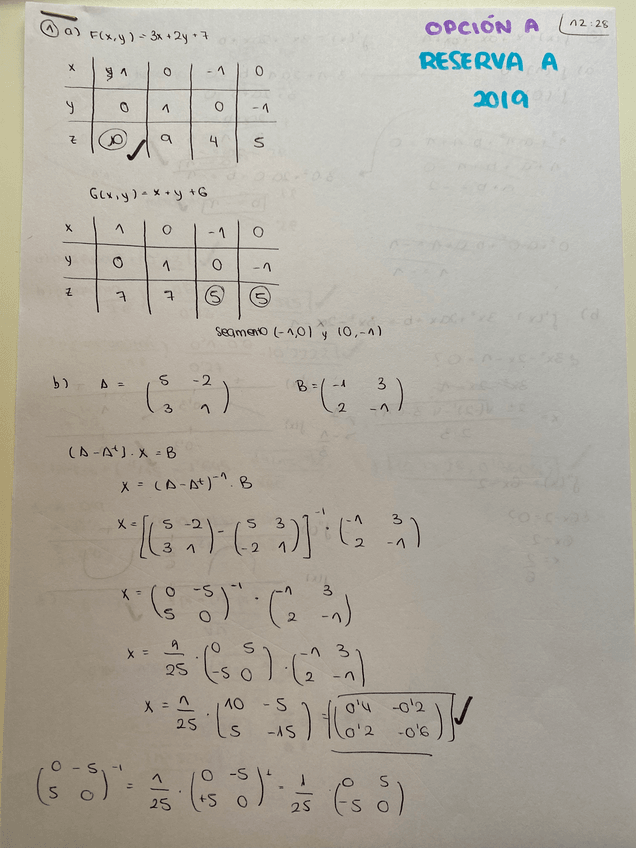 ① a) F(x,y) = 3x+2y+7
OPCIÓN A
12:28
RESERVA A
2019
x | 1 | 0 | -1 | 0
y | 0 | 1 | 0 | -1
z | 10 ✓ | 9 | 4 | 5
G(x,y) = x+y+6
x | 1 | 0 | -1 | 0
y | 0 | 1 | 0 | -1
z | 7 | 7 | 5 | 5
segmento (-1,0) y (0,-1)
b) A = (5 -2; 3 1) B = (-1 3; 2 -1)
(A-Aᵗ)·X = B
X = (A-Aᵗ)⁻¹·B
X = [(5 -2; 3 1) - (5 3; -2 1)]⁻¹ · (-1 3; 2 -1)
X = (0 -5; 5 0)⁻¹ · (-1 3; 2 -1)
X = 1/25 · (0 5; -5 0) · (-1 3; 2 -1)
X = 1/25 · (10 -5; 5 -15) = (0'4 -0'2; 0'2 -0'6) ✓
(0 -5; 5 0)⁻¹ = 1/25 · (0 -5; +5 0)ᵗ = 1/25 · (0 5; -5 0)